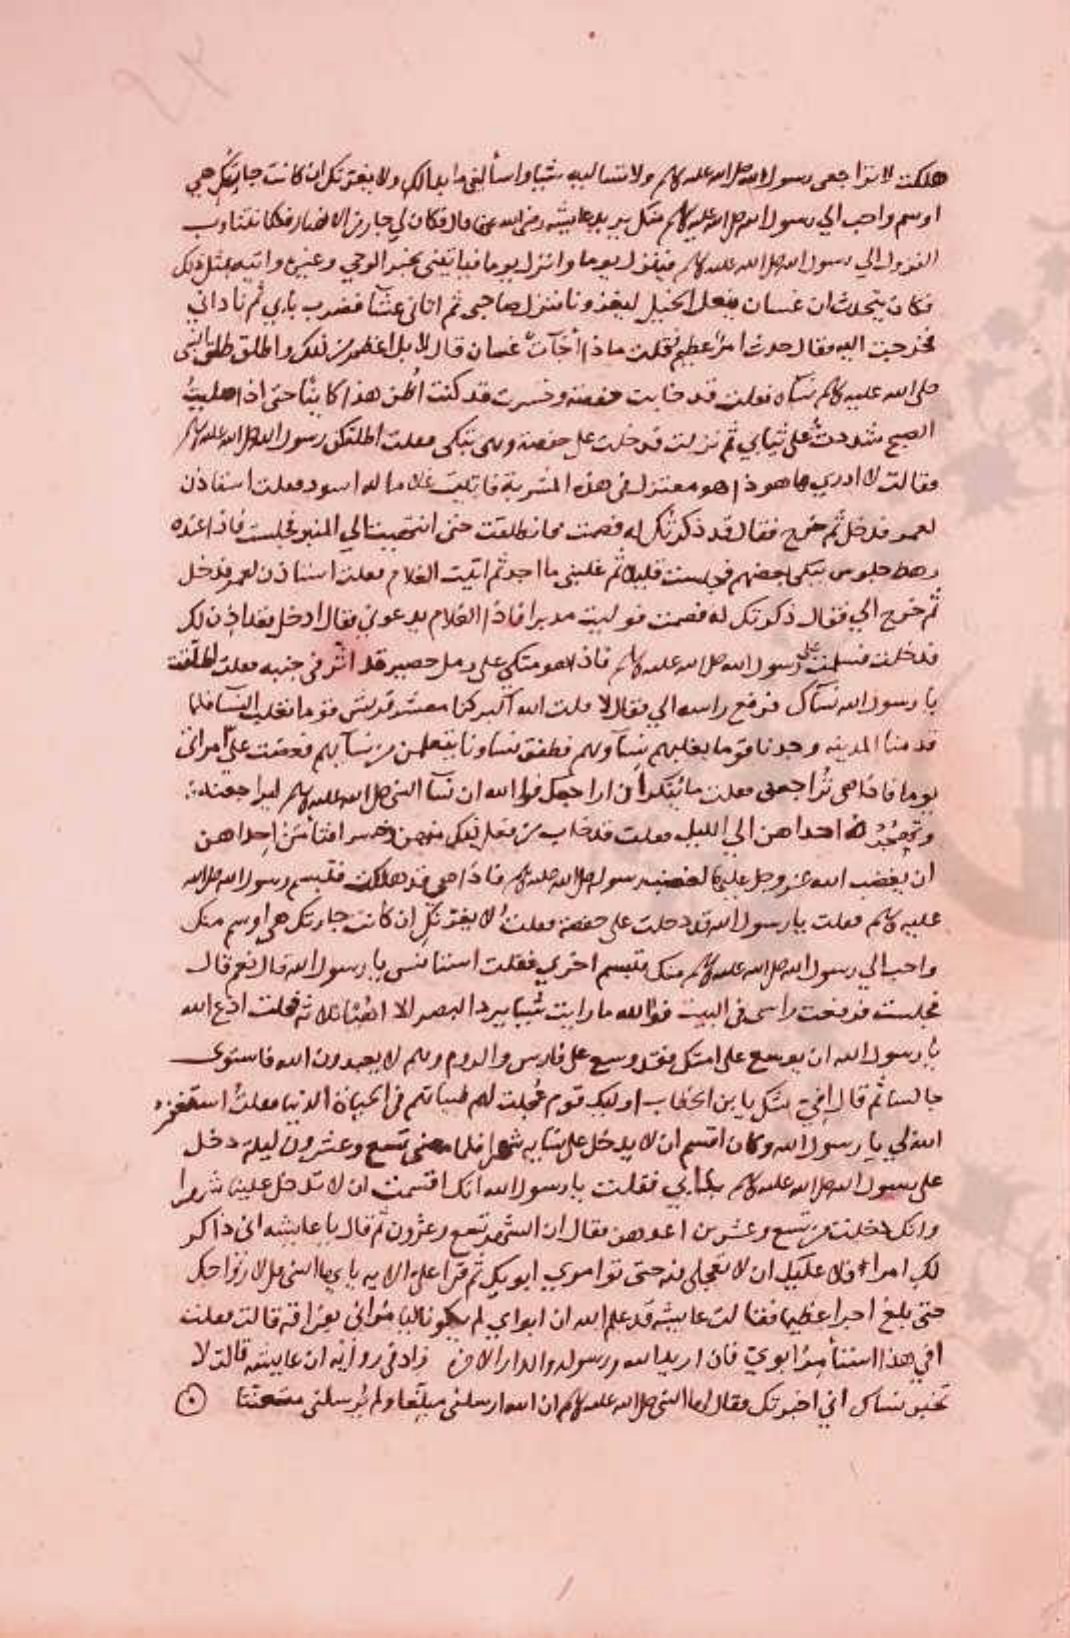 هلكت لا تراجعي رسول الله صلى الله عليه وسلم ولا تسأليه شيا واسأليني ما بدا لك ولا يغرنك ان كانت جارتك هي
اوسم واحب الي رسول الله صلى الله عليه وسلم منك يريد عايشه رضي الله عنها قال فكان لي جار من الانصار فكنا نتناوب
النزول الي رسول الله صلى الله عليه وسلم فينزل يوما وانزل يوما فياتيني بخبر الوحي وغيره واتيه بمثل ذلك
فكان يتحدث ان غسان ينعل الخيل ليغزونا فنزل صاحبي ثم اتاني عشا فضرب بابي ثم ناداني
فخرجت اليه فقال حدث امر عظيم فقلت ماذا أجآت غسان قال لا بل اعظم من ذلك واطلق طلق النبي
صلى الله عليه وسلم نساه فقلت قد خابت حفصة وخسرت قد كنت أظن هذا كاينا حتى اذا صليت
الصبح شددت على ثيابي ثم نزلت فدخلت على حفصة وهي تبكي فقلت اطلقكن رسول الله صلى الله عليه وسلم
فقالت لا ادري ها هو ذا هو معتزل في هذه المشربة فاتيت غلاما له اسود فقلت استاذن
لعمر فدخل ثم خرج فقال قد ذكرتك له فصمت فانطلقت حتى انتهيت الي المنبر فجلست فاذا عنده
رهط جلوس يبكي بعضهم فجلست قليلا ثم غلبني ما اجد ثم اتيت الغلام فقلت استاذن لعمر فدخل
ثم خرج الي فقال ذكرتك له فصمت فوليت مدبرا فاذا الغلام يدعوني فقال ادخل فقد اذن لك
فدخلت فسلمت على رسول الله صلى الله عليه وسلم فاذا هو متكي على رمل حصير قد اثر في جنبه فقلت اطلقت
يا رسول الله نساك فرفع راسه الي فقال لا فقلت الله اكبر كنا معشر قريش قوما نغلب النسا فلما
قدمنا المدينه وجدنا قوما يغلبهم نساوهم فطفق نساونا يتعلمن من نسآيهم فغضبت علي امراتي
يوما فاذا هي تراجعني فقلت ما تنكر أن اراجعك فوالله ان نسآ النبي صلى الله عليه وسلم ليراجعنه
وتهجره احداهن الي الليل فقلت قد خاب من فعل ذلك منهن وخسر افتأمن احداهن
ان يغضب الله عز وجل عليها لغضب رسوله صلى الله عليه وسلم فاذا هي قد هلكت فتبسم رسول الله صلى الله
عليه وسلم فقلت يا رسول الله قد دخلت على حفصة فقلت لا يغرنك ان كانت جارتك هي اوسم منك
واحب الي رسول الله صلى الله عليه وسلم منك فتبسم اخرى فقلت استانس يا رسول الله قال نعم قال
فجلست فرفعت راسي في البيت فوالله ما رايت شييا يرد البصر الا اهبا ثلاثه فقلت ادع الله
يا رسول الله ان يوسع على امتك فقد وسع على فارس والروم وهم لا يعبدون الله فاستوى
جالسا ثم قال افي شك يا بن الخطاب اوليك قوم عجلت لهم طيباتهم في الحياة الدنيا فقلت استغفر
الله لي يا رسول الله وكان اقسم ان لا يدخل على نسايه شهرا فلما مضى تسع وعشرون ليلة دخل
على رسول الله صلى الله عليه وسلم فقلت يا رسول الله انك اقسمت ان لا تدخل علينا شهرا
وانك دخلت من تسع وعشرين اعدهن فقال ان الشهر تسع وعشرون ثم قال يا عايشه اني ذاكر
لك امرا فلا عليك ان لا تعجلي فيه حتى توامري ابويك ثم قرا علي الايه يا ايها النبي قل لازواجك
حتى بلغ اجرا عظيما فقالت عايشه قد علم الله ان ابواي لم يكونا ليامراني بفراقه قالت فقلت
افي هذا استأمر ابوي فان اريد الله ورسوله والدار الاخرة زاد في روايه ان عايشة قالت لا
تخبر نساك اني اخترتك فقال لها النبي صلى الله عليه وسلم ان الله ارسلني مبلغا ولم يرسلني متعنتا